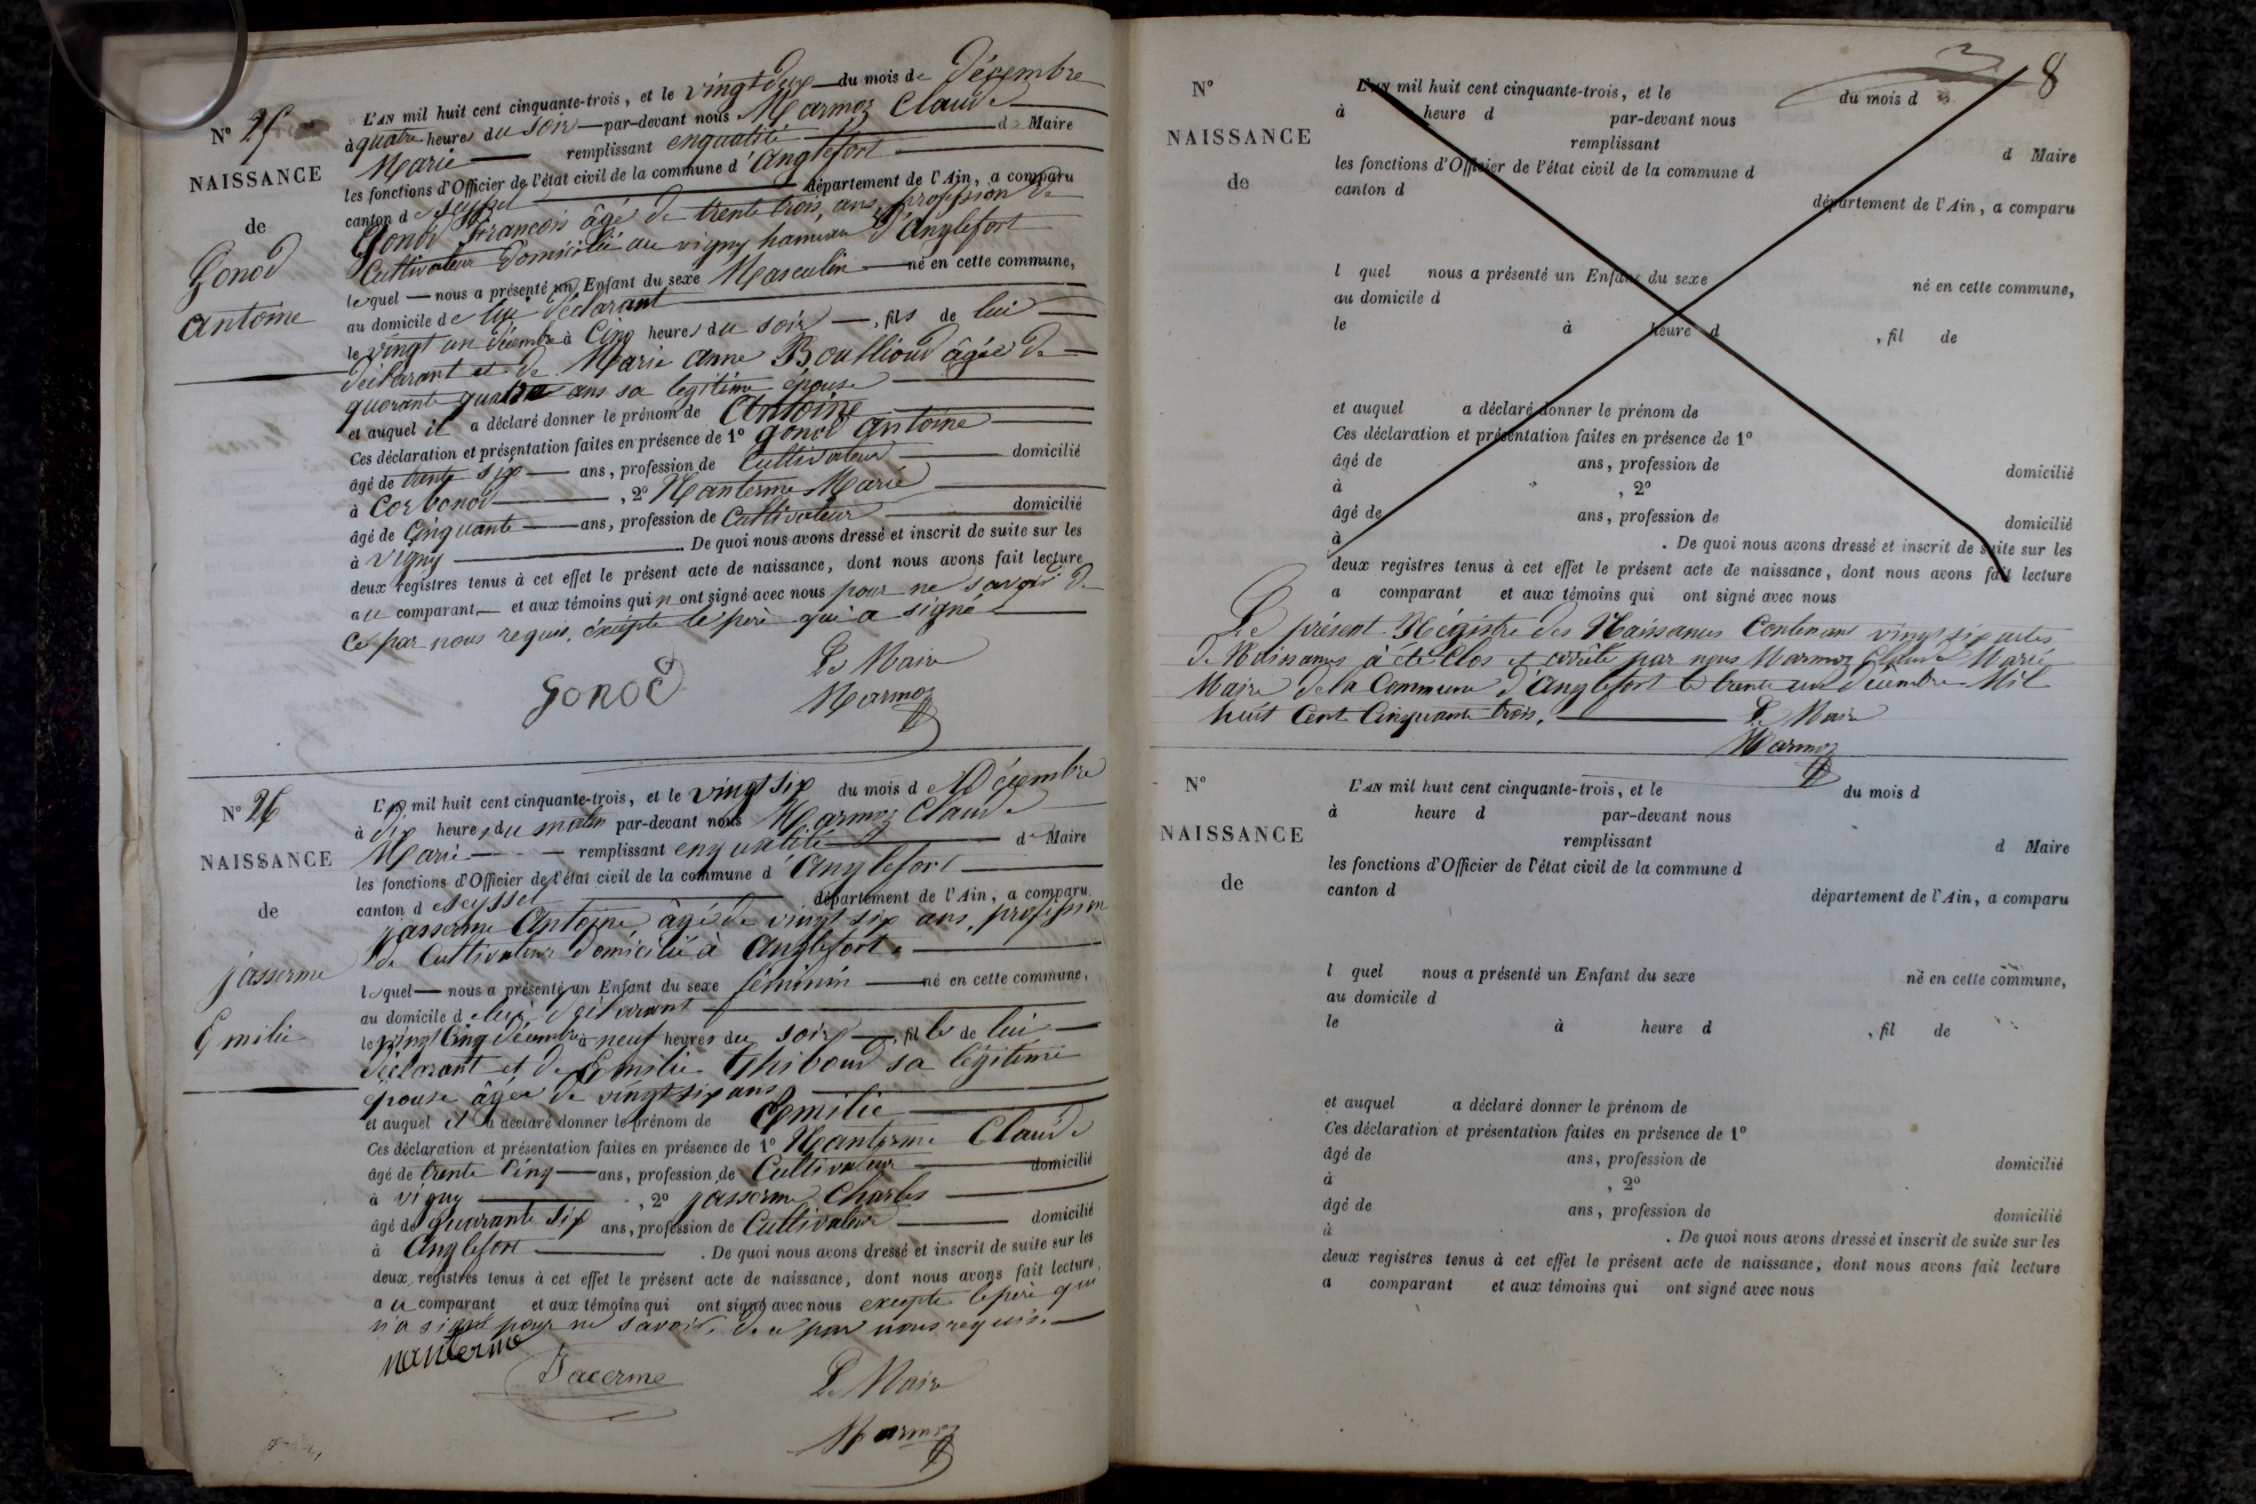 N° 25
NAISSANCE
de
Gonod
Antoine
L'AN mil huit cent cinquante-trois, et le vingt deux du mois de Décembre
à quatre heures du soir par-devant nous Marmoz Claude
Marie remplissant en qualité de Maire
les fonctions d'Officier de l'état civil de la commune d'Anglefort
canton de Seyssel département de l'Ain, a comparu
Gonod François âgé de trente trois ans, profession de
Cultivateur domicilié au vigny hameau d'Anglefort
lequel nous a présenté un Enfant du sexe Masculin né en cette commune,
au domicile de lui déclarant
le vingt un décembre à Cinq heures du soir, fils de lui
déclarant et de Marie anne Boullioud âgée de
quarante quatre ans sa legitime épouse
et auquel il a déclaré donner le prénom de Antoine
Ces déclaration et présentation faites en présence de 1° gonod antoine
âgé de trente six ans, profession de Cultivateur domicilié
à Corbonod, 2° Nanterme Marie
âgé de Cinquante ans, profession de Cultivateur domicilié
à vigny . De quoi nous avons dressé et inscrit de suite sur les
deux registres tenus à cet effet le présent acte de naissance, dont nous avons fait lecture
au comparant et aux témoins qui n ont signé avec nous pour ne savoir de
ce par nous requis, éxépté le père qui a signé
Le Maire
gonod Marmoz
N° 26
NAISSANCE
de
jasserme
Emilie
L'AN mil huit cent cinquante-trois, et le vingt six du mois de Décembre
à dix heures du matin par-devant nous Marmoz Claude
Marie remplissant en qualité de Maire
les fonctions d'Officier de l'état civil de la commune d'Anglefort
canton de Seyssel département de l'Ain, a comparu
jasserme Antoine, âgé de vingt six ans, profession
de Cultivateur domicilié à Anglefort.
lequel nous a présenté un Enfant du sexe féminin né en cette commune,
au domicile de lui déclarant
le vingt Cinq décembre à neuf heures du soir, fille de lui
déclarant et de Emilie Thiboud sa légitime
épouse âgée de vingt six ans
et auquel il a déclaré donner le prénom de Emilie
Ces déclaration et présentation faites en présence de 1° Nanterme Claude
âgé de trente Cinq ans, profession de Cultivateur domicilié
à vigny, 2° jasserme Charles
âgé de quarante six ans, profession de Cultivateur domicilié
à Anglefort . De quoi nous avons dressé et inscrit de suite sur les
deux registres tenus à cet effet le présent acte de naissance, dont nous avons fait lecture
au comparant et aux témoins qui ont signé avec nous excepté le père qui
n'a signé pour ne savoir, de ce par nous requis.
nanterme
Jacerme Le Maire
Marmoz
8
N°
NAISSANCE
de
L'AN mil huit cent cinquante-trois, et le du mois d
à heure d par-devant nous
remplissant d Maire
les fonctions d'Officier de l'état civil de la commune d
canton d département de l'Ain, a comparu
l quel nous a présenté un Enfant du sexe né en cette commune,
au domicile d
le à heure d , fil de
et auquel a déclaré donner le prénom de
Ces déclaration et présentation faites en présence de 1°
âgé de ans, profession de domicilié
à , 2°
âgé de ans, profession de domicilié
à . De quoi nous avons dressé et inscrit de suite sur les
deux registres tenus à cet effet le présent acte de naissance, dont nous avons fait lecture
a comparant et aux témoins qui ont signé avec nous
Le présent Régistre des Naissances Contenant vingt six actes
de Naissances à été Clos et arrêté par nous Marmoz Claude Marie
Maire de la Commune d'Anglefort le trente un décembre Mil
huit Cent Cinquante trois. Le Maire
Marmoz
N°
NAISSANCE
de
L'AN mil huit cent cinquante-trois, et le du mois d
à heure d par-devant nous
remplissant d Maire
les fonctions d'Officier de l'état civil de la commune d
canton d département de l'Ain, a comparu
l quel nous a présenté un Enfant du sexe né en cette commune,
au domicile d
le à heure d , fil de
et auquel a déclaré donner le prénom de
Ces déclaration et présentation faites en présence de 1°
âgé de ans, profession de domicilié
à , 2°
âgé de ans, profession de domicilié
à . De quoi nous avons dressé et inscrit de suite sur les
deux registres tenus à cet effet le présent acte de naissance, dont nous avons fait lecture
a comparant et aux témoins qui ont signé avec nous